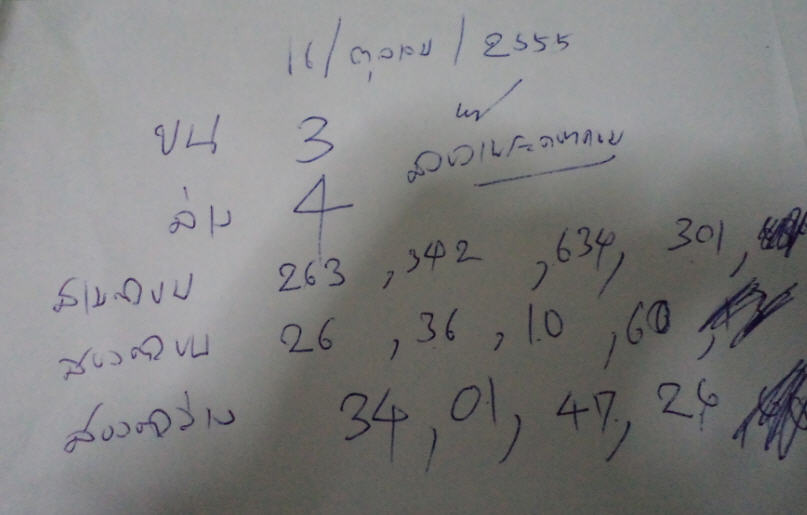 16/ตุลาคม/2555
บน 3
ล่าง 4
สามตัวบน 263, 342, 634, 301,
สองตัวบน 26, 36, 10, 60,
สองตัวล่าง 34, 01, 47, 26